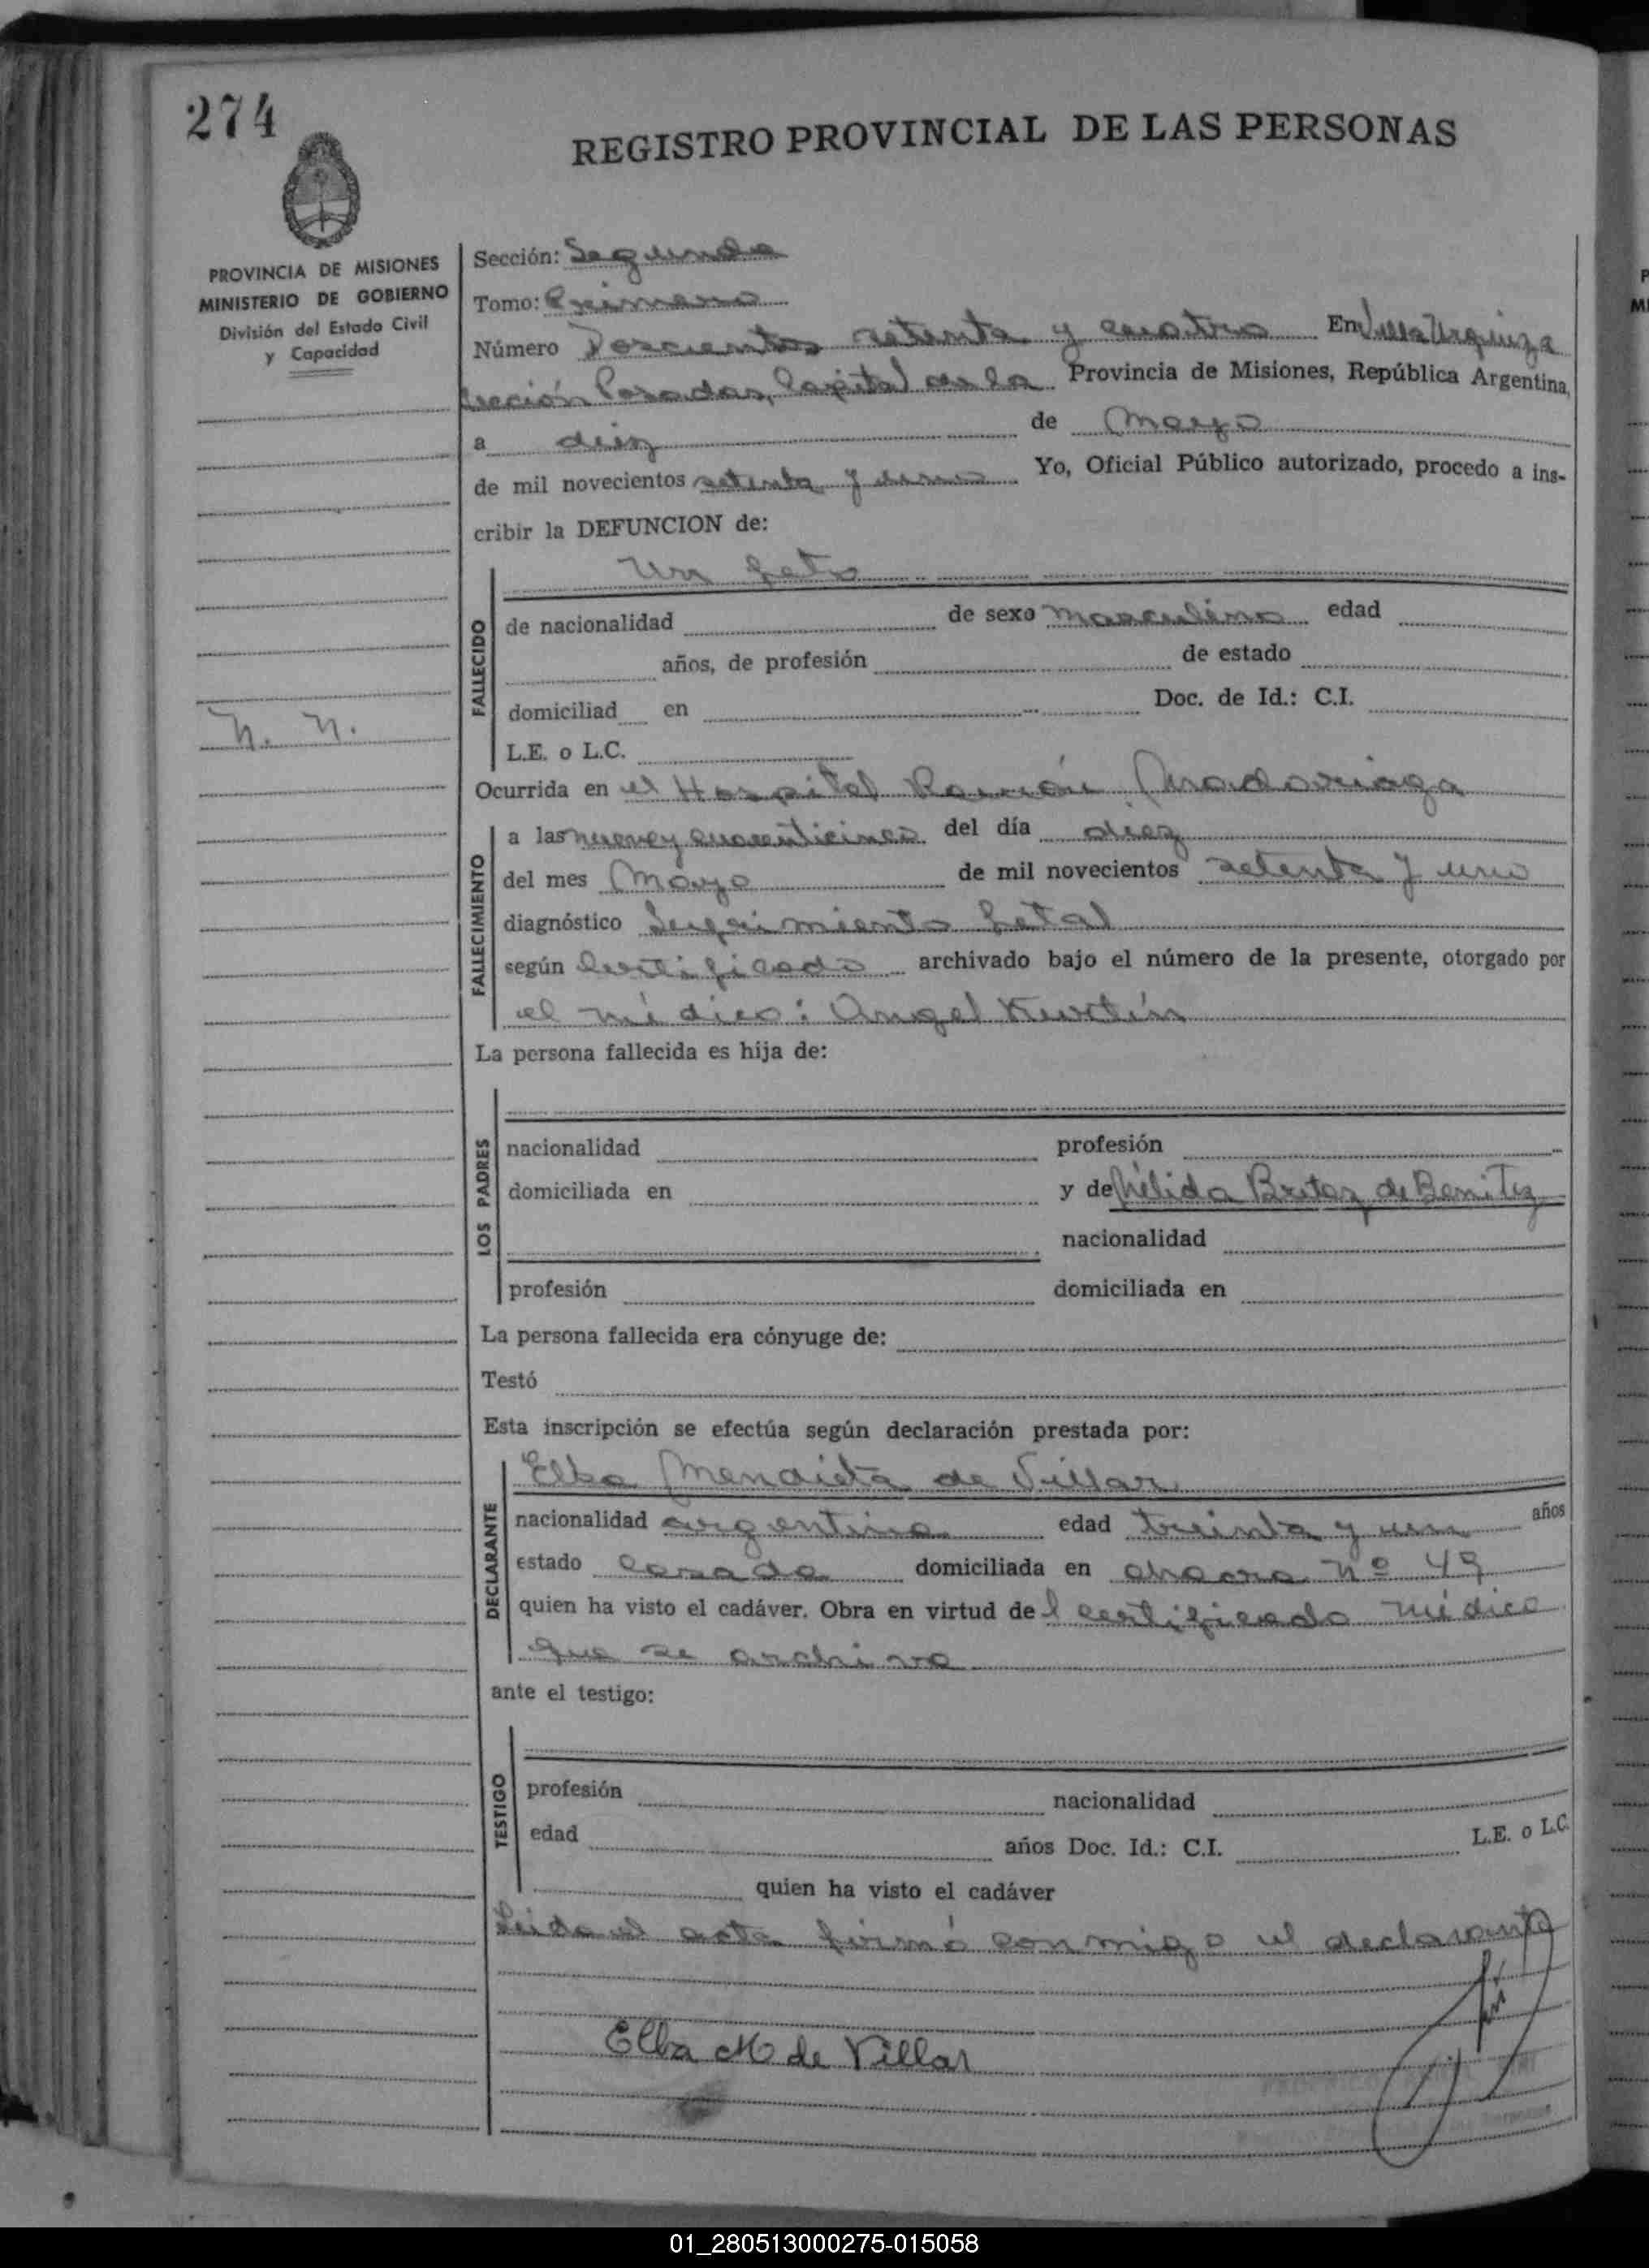 274
REGISTRO PROVINCIAL DE LAS PERSONAS
PROVINCIA DE MISIONES
MINISTERIO DE GOBIERNO
División del Estado Civil
y Capacidad
Sección: Segunda
Tomo: Primero
Número Doscientos setenta y cuatro En Villa Urquiza
Sección Posadas, Capital de la Provincia de Misiones, República Argentina,
a diez de Mayo
de mil novecientos setenta y uno Yo, Oficial Público autorizado, procedo a ins-
cribir la DEFUNCION de:
Un feto
FALLECIDO
de nacionalidad de sexo masculino edad
años, de profesión de estado
domiciliad en Doc. de Id.: C.I.
N. N.
L.E. o L.C.
Ocurrida en el Hospital Ramón Madariaga
FALLECIMIENTO
a las nueve y cuarenticinco del día diez
del mes Mayo de mil novecientos setenta y uno
diagnóstico Sufrimiento fetal
según Certificado archivado bajo el número de la presente, otorgado por
el médico: Angel
La persona fallecida es hija de:
LOS PADRES
nacionalidad profesión
domiciliada en y de Nélida Britez de Benitez
nacionalidad
profesión domiciliada en
La persona fallecida era cónyuge de:
Testó
Esta inscripción se efectúa según declaración prestada por:
DECLARANTE
Elba Mendieta de Villar
nacionalidad argentina edad treinta y un años
estado casada domiciliada en chacra Nº 49
quien ha visto el cadáver. Obra en virtud del certificado médico
que se archiva
ante el testigo:
TESTIGO
profesión nacionalidad
edad años Doc. Id.: C.I. L.E. o L.C.
quien ha visto el cadáver
Leida el acta firmó conmigo el declarante
Elba M de Villar
01_280513000275-015058